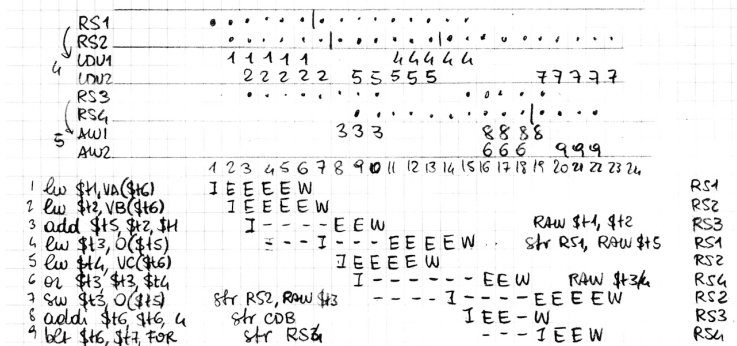 RS1
RS2
4 LDU1 1 1 1 1 1 4 4 4 4 4
LDU2 2 2 2 2 2 5 5 5 5 5 7 7 7 7 7
RS3
RS4
5 ALU1 3 3 3 8 8 8 8
ALU2 6 6 6 9 9 9
1 2 3 4 5 6 7 8 9 10 11 12 13 14 15 16 17 18 19 20 21 22 23 24
1 lw $t1, VA($t6) I E E E E E W RS1
2 lw $t2, VB($t6) I E E E E E W RS2
3 add $t5, $t2, $t1 I - - - - E E W RAW $t1, $t2 RS3
4 lw $t3, 0($t5) - - - I - - - E E E E E W str RS1, RAW $t5 RS1
5 lw $t4, VC($t6) I E E E E E W RS2
6 or $t3, $t3, $t4 I - - - - - - E E W RAW $t3/4 RS4
7 sw $t3, 0($t5) str RS2, RAW $t3 - - - - I - - - - E E E E E W RS2
8 addi $t6, $t6, 4 str CDB I E E - W RS3
9 blt $t6, $t7, FOR str RS4 - - - I E E W RS4